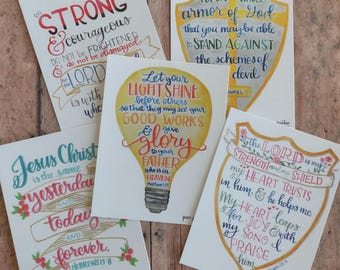 BE
STRONG
& courageous
DO NOT BE FRIGHTENED
& do not be dismayed,
the LORD
is with
armor of God
that you may be able
to STAND AGAINST
the schemes of
devil
Let your
LIGHT SHINE
before others
so that they may see your
GOOD WORKS
& give
glory
to your
FATHER
who is in
HEAVEN
Jesus Christ
is the same
yesterday
AND
today
AND
forever.
HEBREWS 13:8
the LORD is my
STRENGTH and my SHIELD
my HEART TRUSTS
in him & he helps me
My HEART leaps
for JOY & with
my song I
PRAISE
him